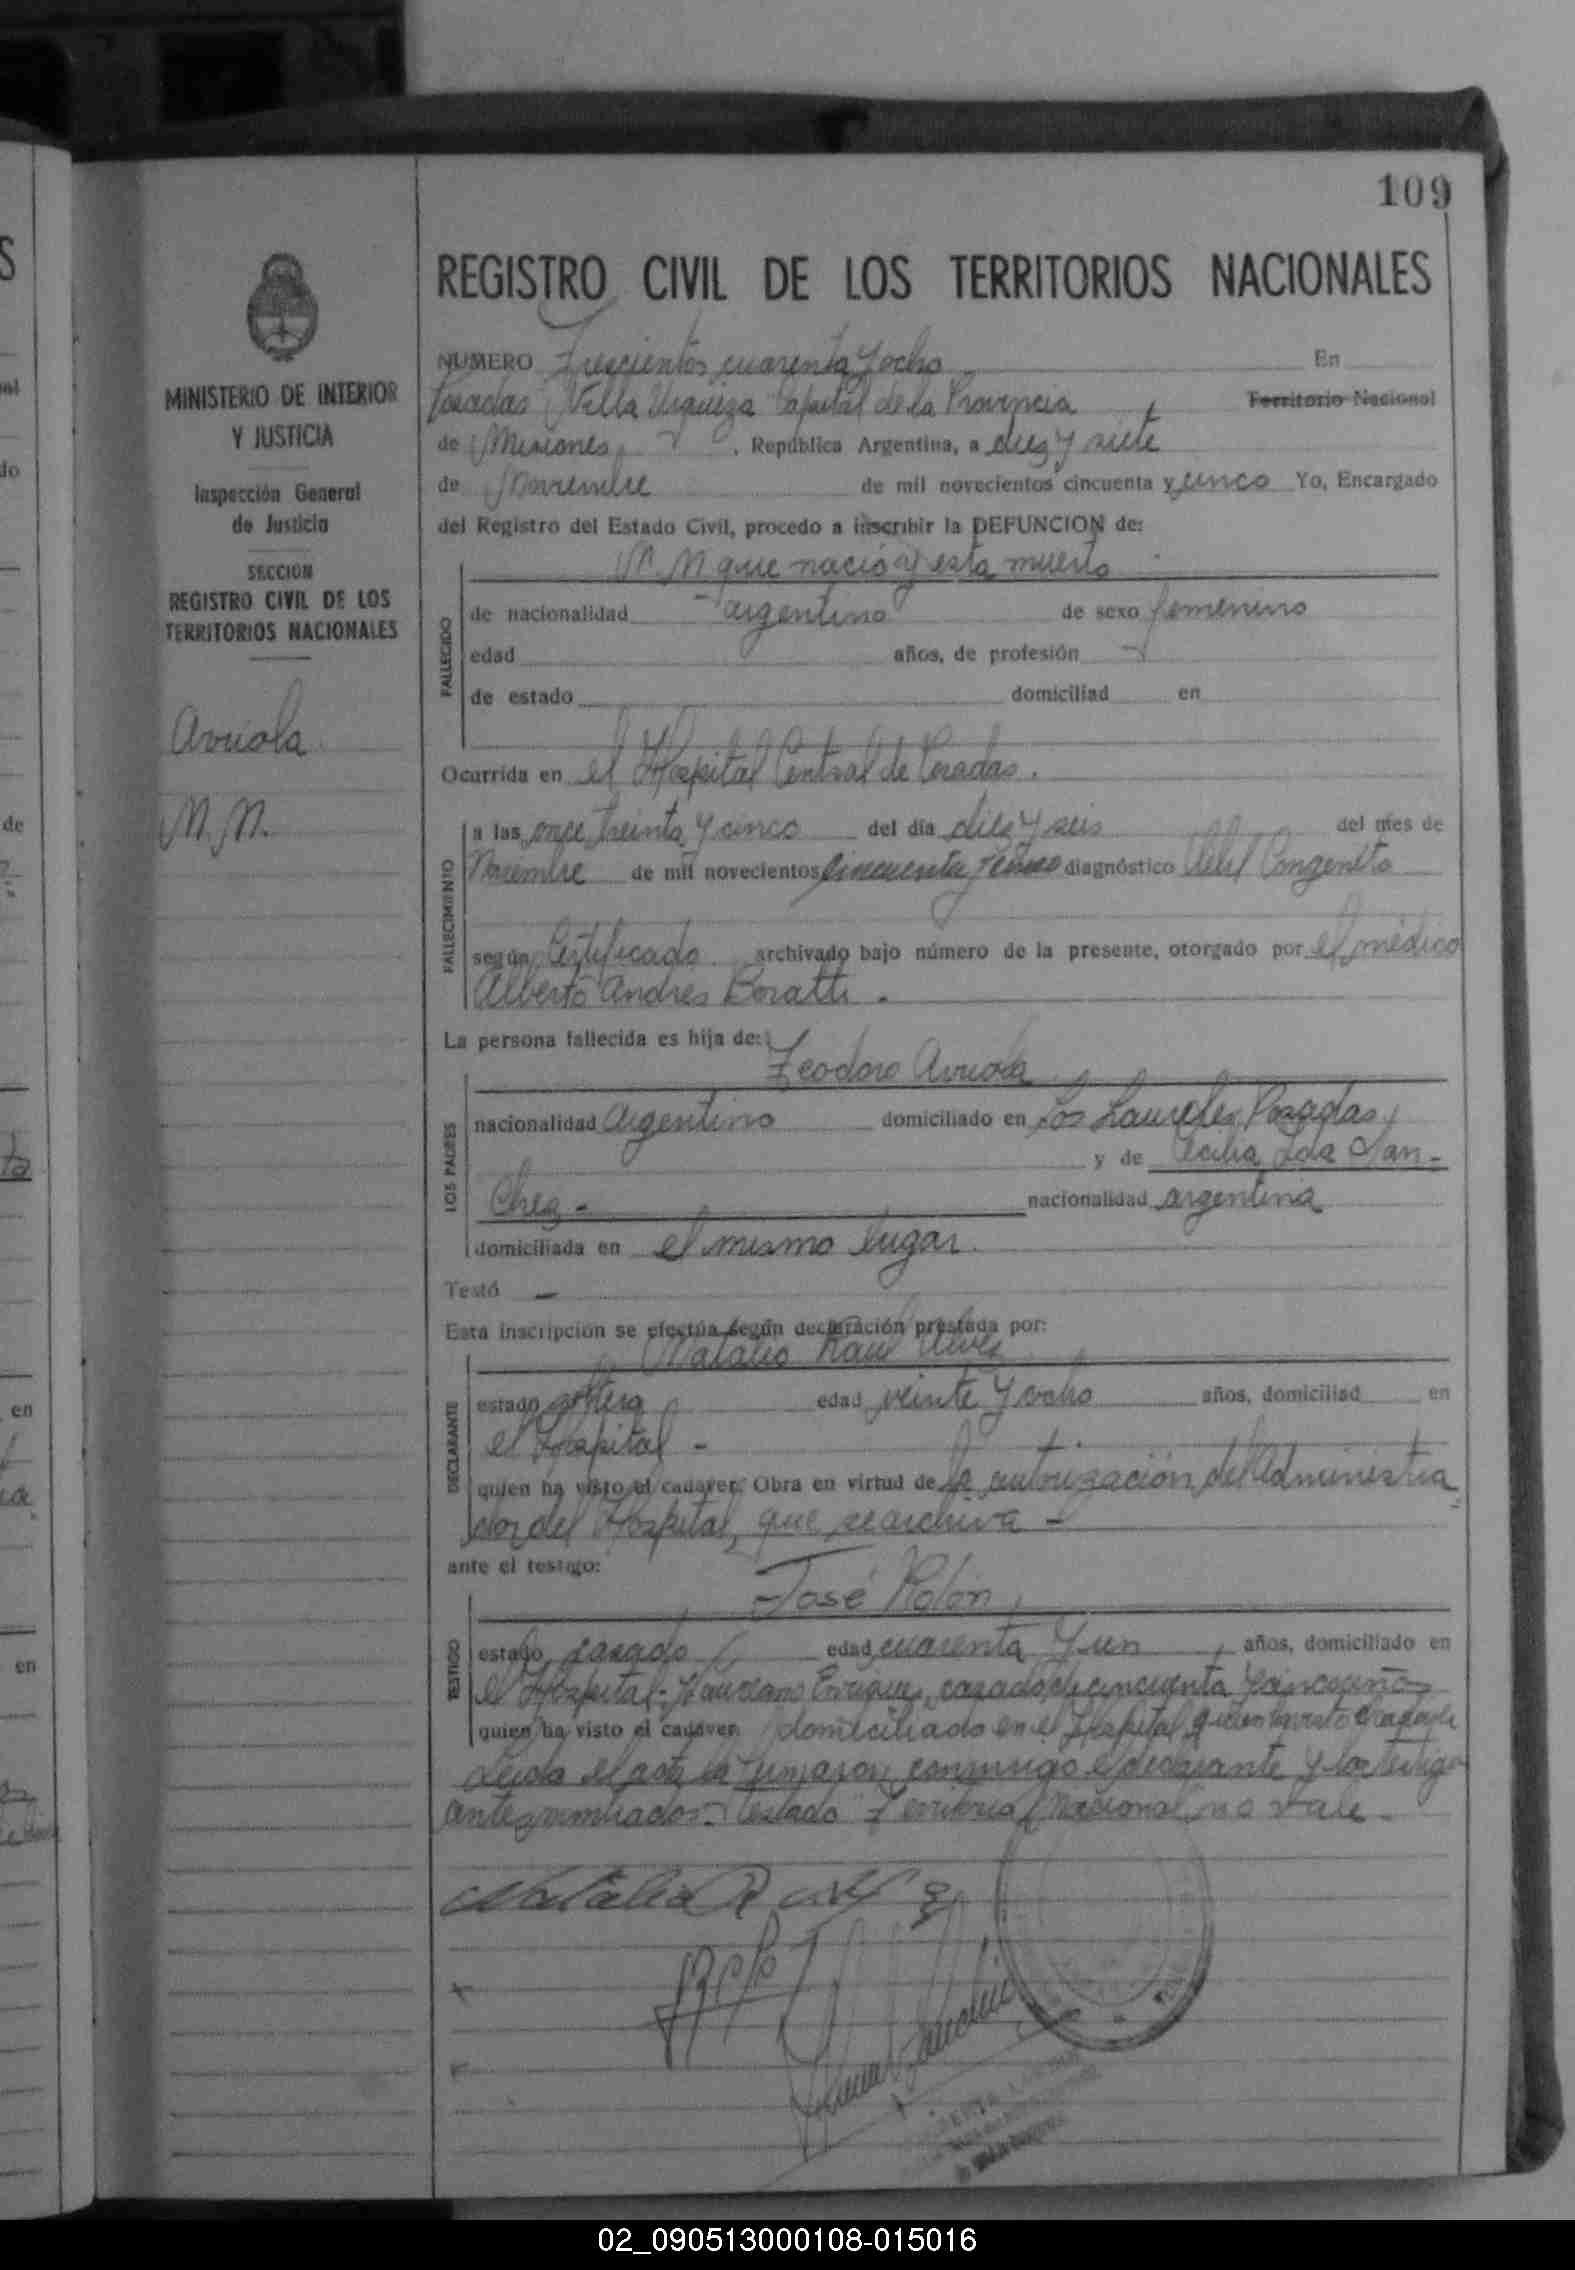 109
REGISTRO CIVIL DE LOS TERRITORIOS NACIONALES
MINISTERIO DE INTERIOR
Y JUSTICIA
Inspección General
de Justicia
SECCION
REGISTRO CIVIL DE LOS
TERRITORIOS NACIONALES
Arriola
N. N.
NUMERO Trescientos cuarenta y ocho En
Posadas Villa Urquiza Capital de la Provincia Territorio Nacional
de Misiones, República Argentina, a diez y siete
de Noviembre de mil novecientos cincuenta y cinco Yo, Encargado
del Registro del Estado Civil, procedo a inscribir la DEFUNCION de:
N. N que nació y esta muerto
FALLECIDO
de nacionalidad argentino de sexo femenino
edad años, de profesión
de estado domiciliad en
Ocurrida en el Hospital Central de Posadas.
FALLECIMIENTO
a las once treinta y cinco del día diez y seis del mes de
Noviembre de mil novecientos cincuenta y cinco diagnóstico Debil Congenito
según Certificado archivado bajo número de la presente, otorgado por el médico
Alberto Andres
La persona fallecida es hija de:
Teodoro Arriola
LOS PADRES
nacionalidad Argentino domiciliado en Los Laureles Posadas
y de Cecilia Ida San-
chez - nacionalidad argentina
domiciliada en el mismo lugar.
Testó —
Esta inscripción se efectúa según declaración prestada por:
Natalio Raul
DECLARANTE
estado soltero edad veinte y ocho años, domiciliad en
el Hospital -
quien ha visto el cadáver. Obra en virtud de la autorización del Administra
dor del Hospital, que se archiva -
ante el testigo:
José Rolón
TESTIGO
estado casado edad cuarenta y un años, domiciliado en
el Hospital - casado de cincuenta y cinco años
quien ha visto el cadáver domiciliado en el Hospital, quien ha visto el cadaver
Leida el acta la firmaron conmigo el declarante y los testigos
antes nombrados. Testado "Territorio Nacional no vale -
02_090513000108-015016